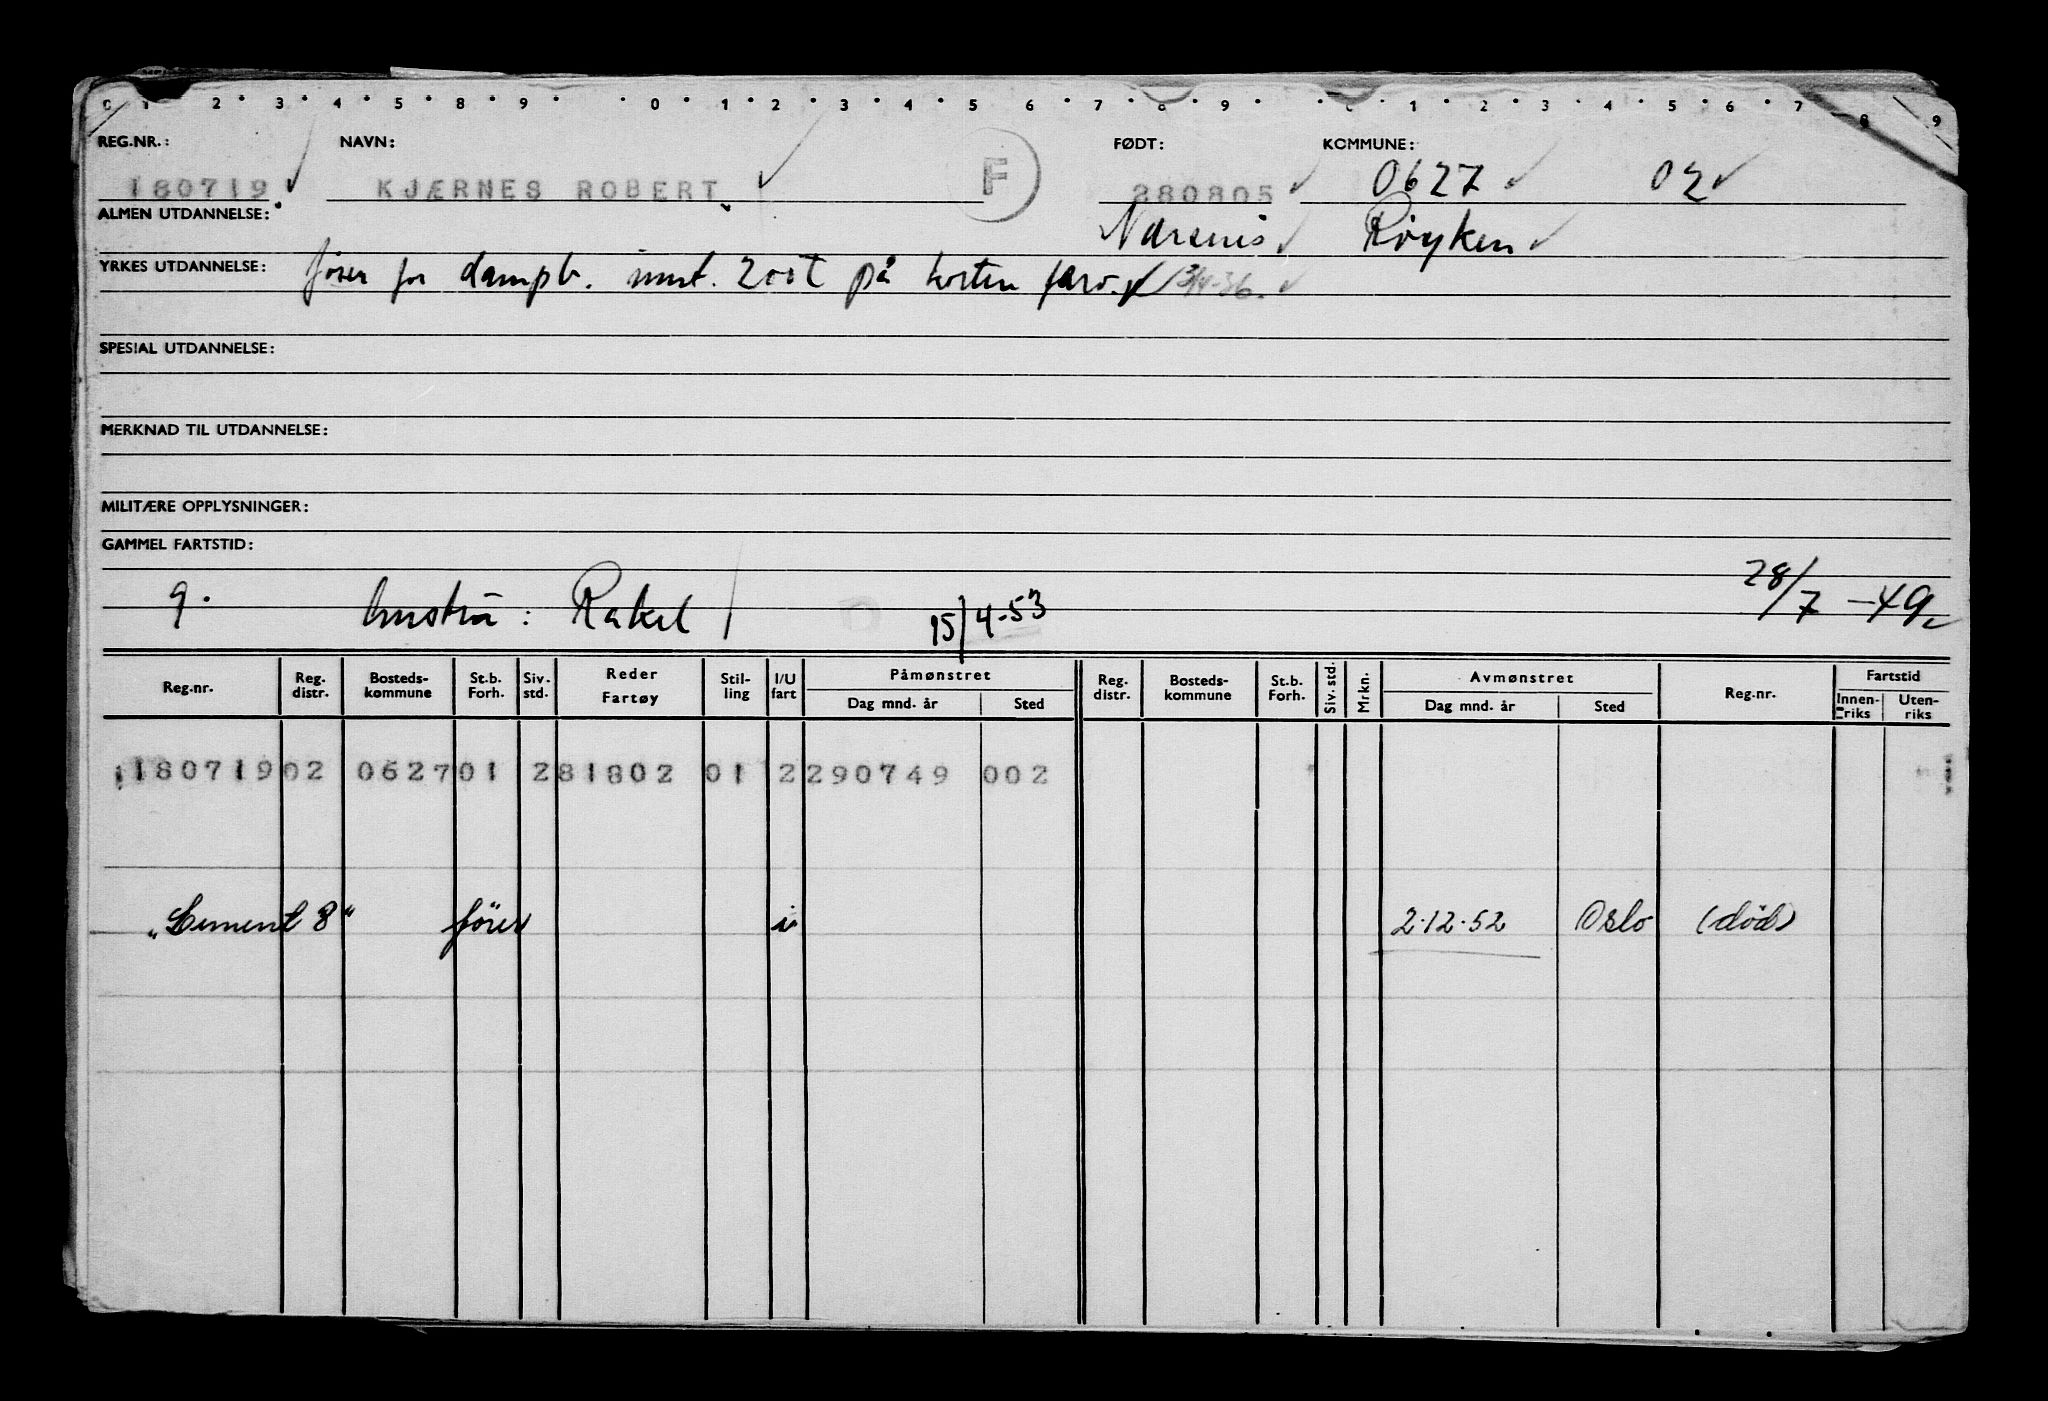 0 1 2 3 4 5 8 9 0 1 2 3 4 5 6 7 8 9 0 1 2 3 4 5 6 7 8 9
REG.NR.: NAVN: F FØDT: KOMMUNE:
180719 KJÆRNES ROBERT 280805 0627 02
ALMEN UTDANNELSE: Nærsnes Røyken
YRKES UTDANNELSE: fører for dampb. innt. 200t på korten farv. 13/4-36.
SPESIAL UTDANNELSE:
MERKNAD TIL UTDANNELSE:
MILITÆRE OPPLYSNINGER:
GAMMEL FARTSTID:
28/7-49
g. hustru: Rakel 15/4-53
Reg.nr. Reg. distr. Bosteds-kommune St.b. Forh. Siv. std. Reder Fartøy Stil-ling I/U fart Påmønstret Dag mnd. år Sted Reg. distr. Bosteds-kommune St.b. Forh. Siv. std. Mrkn. Avmønstret Dag mnd. år Sted Reg.nr. Fartstid Innen-riks Uten-riks
180719 02 0627 01 2 81802 01 2 290749 002
"Cement 8" fører i 2.12.52 Oslo (død)